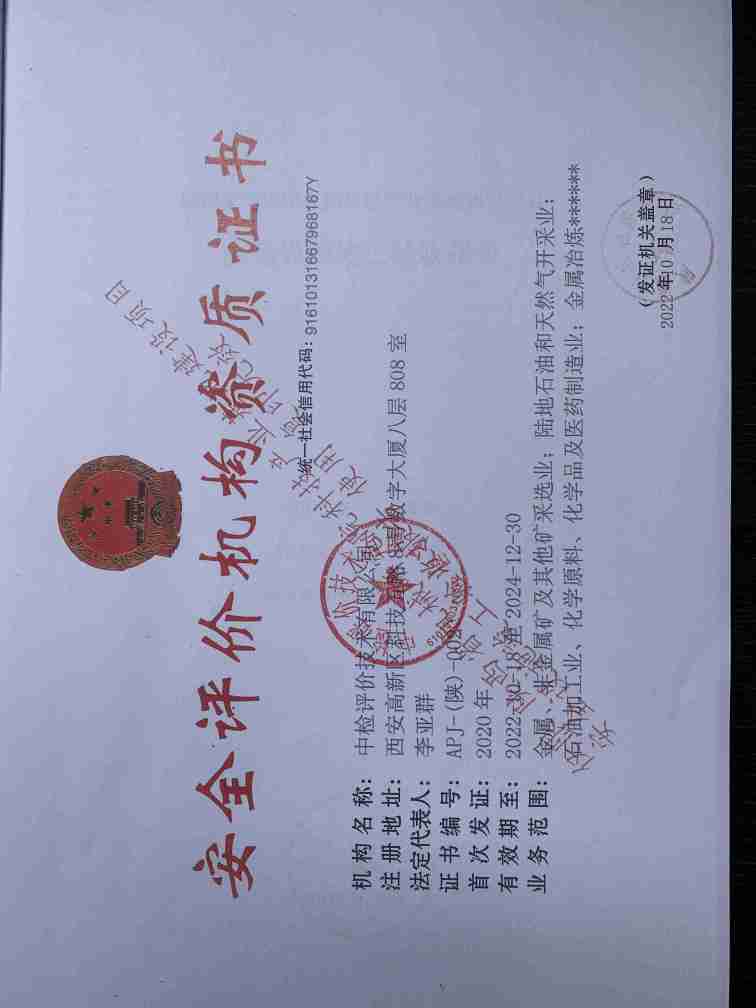 安全评价机构资质证书
统一社会信用代码: 91610131667968167Y
机构名称: 中检评价技术有限公司
注册地址: 西安高新区科技 路 8号数字大厦八层 808 室
法定代表人: 李亚群
证书编号: APJ-(陕)-002
首次发证: 2020 年
有效期至: 2022-10-18 至 2024-12-30
业务范围: 金属、非金属矿及其他矿采选业; 陆地石油和天然气开采业;
石油加工业、化学原料、化学品及医药制造业; 金属冶炼******
(发证机关盖章)
2022 年10 月18 日
建设项目